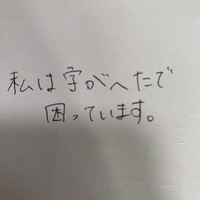 私は字がへたで
困っています。